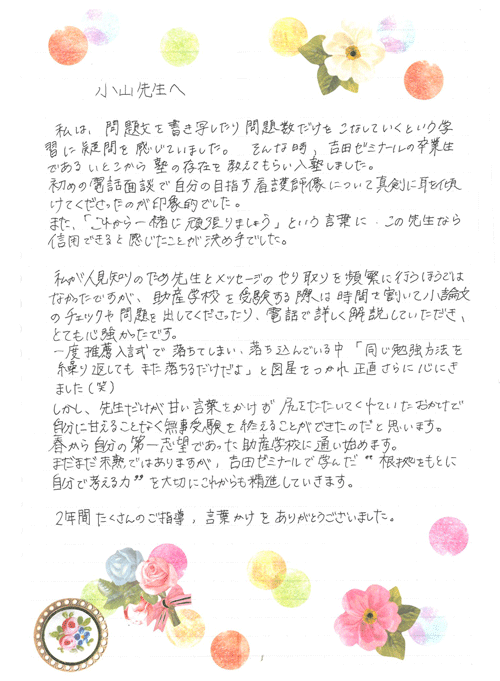 小山先生へ
私は、問題文を書き写したり問題数だけをこなしていくという学
習に疑問を感じていました。そんな時、吉田ゼミナールの卒業生
であるいとこから塾の存在を教えてもらい入塾しました。
初めの電話面談で自分の目指す看護師像について真剣に耳を傾
けてくださったのが印象的でした。
また、「これから一緒に頑張りましょう」という言葉に、この先生なら
信用できると感じたことが決め手でした。
私が人見知りのため先生とメッセージのやり取りを頻繁に行うほうでは
なかったですが、助産学校を受験する際は時間を割いて小論文
のチェックや問題を出してくださったり、電話で詳しく解説していただき、
とても心強かったです。
一度推薦入試で落ちてしまい、落ち込んでいる中「同じ勉強方法を
繰り返しても また落ちるだけだよ」と図星をつかれ正直さらに心にき
ました(笑)
しかし、先生だけが甘い言葉をかけず 尻をたたいてくれていたおかげで
自分に甘えることなく無事受験を終えることができたのだと思います。
春から自分の第一志望であった助産学校に通い始めます。
まだまだ未熟ではありますが、吉田ゼミナールで学んだ“根拠をもとに
自分で考える力”を大切にこれからも精進していきます。
2年間たくさんのご指導、言葉かけをありがとうございました。
1